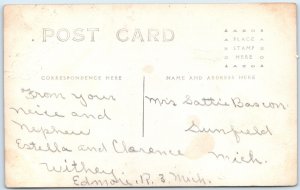 POST CARD
PLACE
STAMP
HERE
CORRESPONDENCE HERE
NAME AND ADDRESS HERE
From your
neice and
nephew
Estella and Clarence
Withey.
Edmore, R. 3. Mich.
Mrs Sattie Bascon.
Sunfield
Mich.